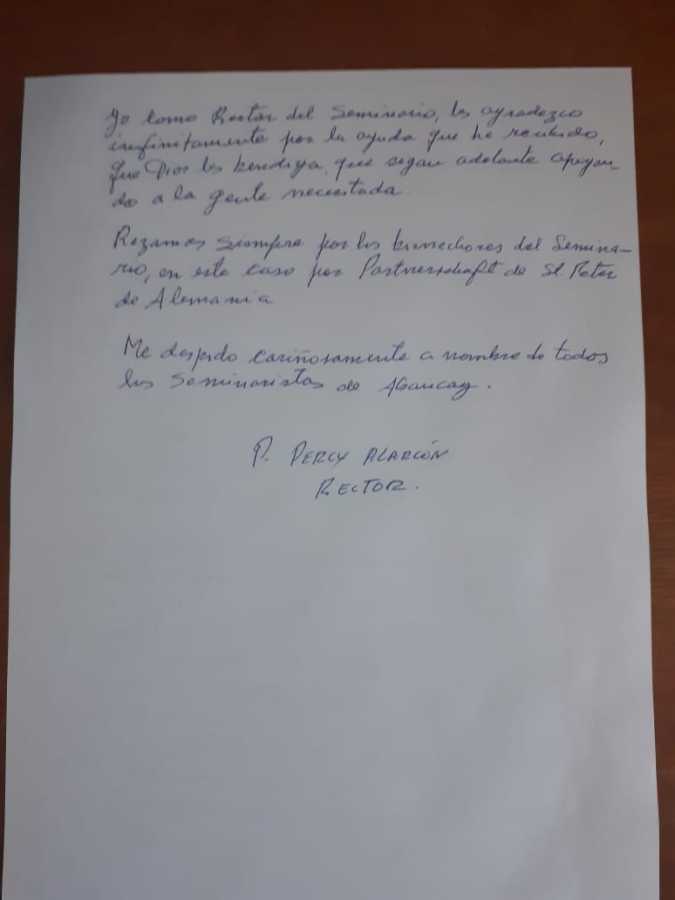 Yo como Rector del Seminario, les agradezco
infinitamente por la ayuda que he recibido,
Que Dios los bendiga, que sigan adelante apoyan-
do a la gente necesitada.
Rezamos siempre por los bienechores del Semina-
rio, en este caso por Partnerschaft de St Peter
de Alemania
Me despido cariñosamente a nombre de todos
los Seminaristas de Abancay.
P. PERCY ALARCÓN
RECTOR.